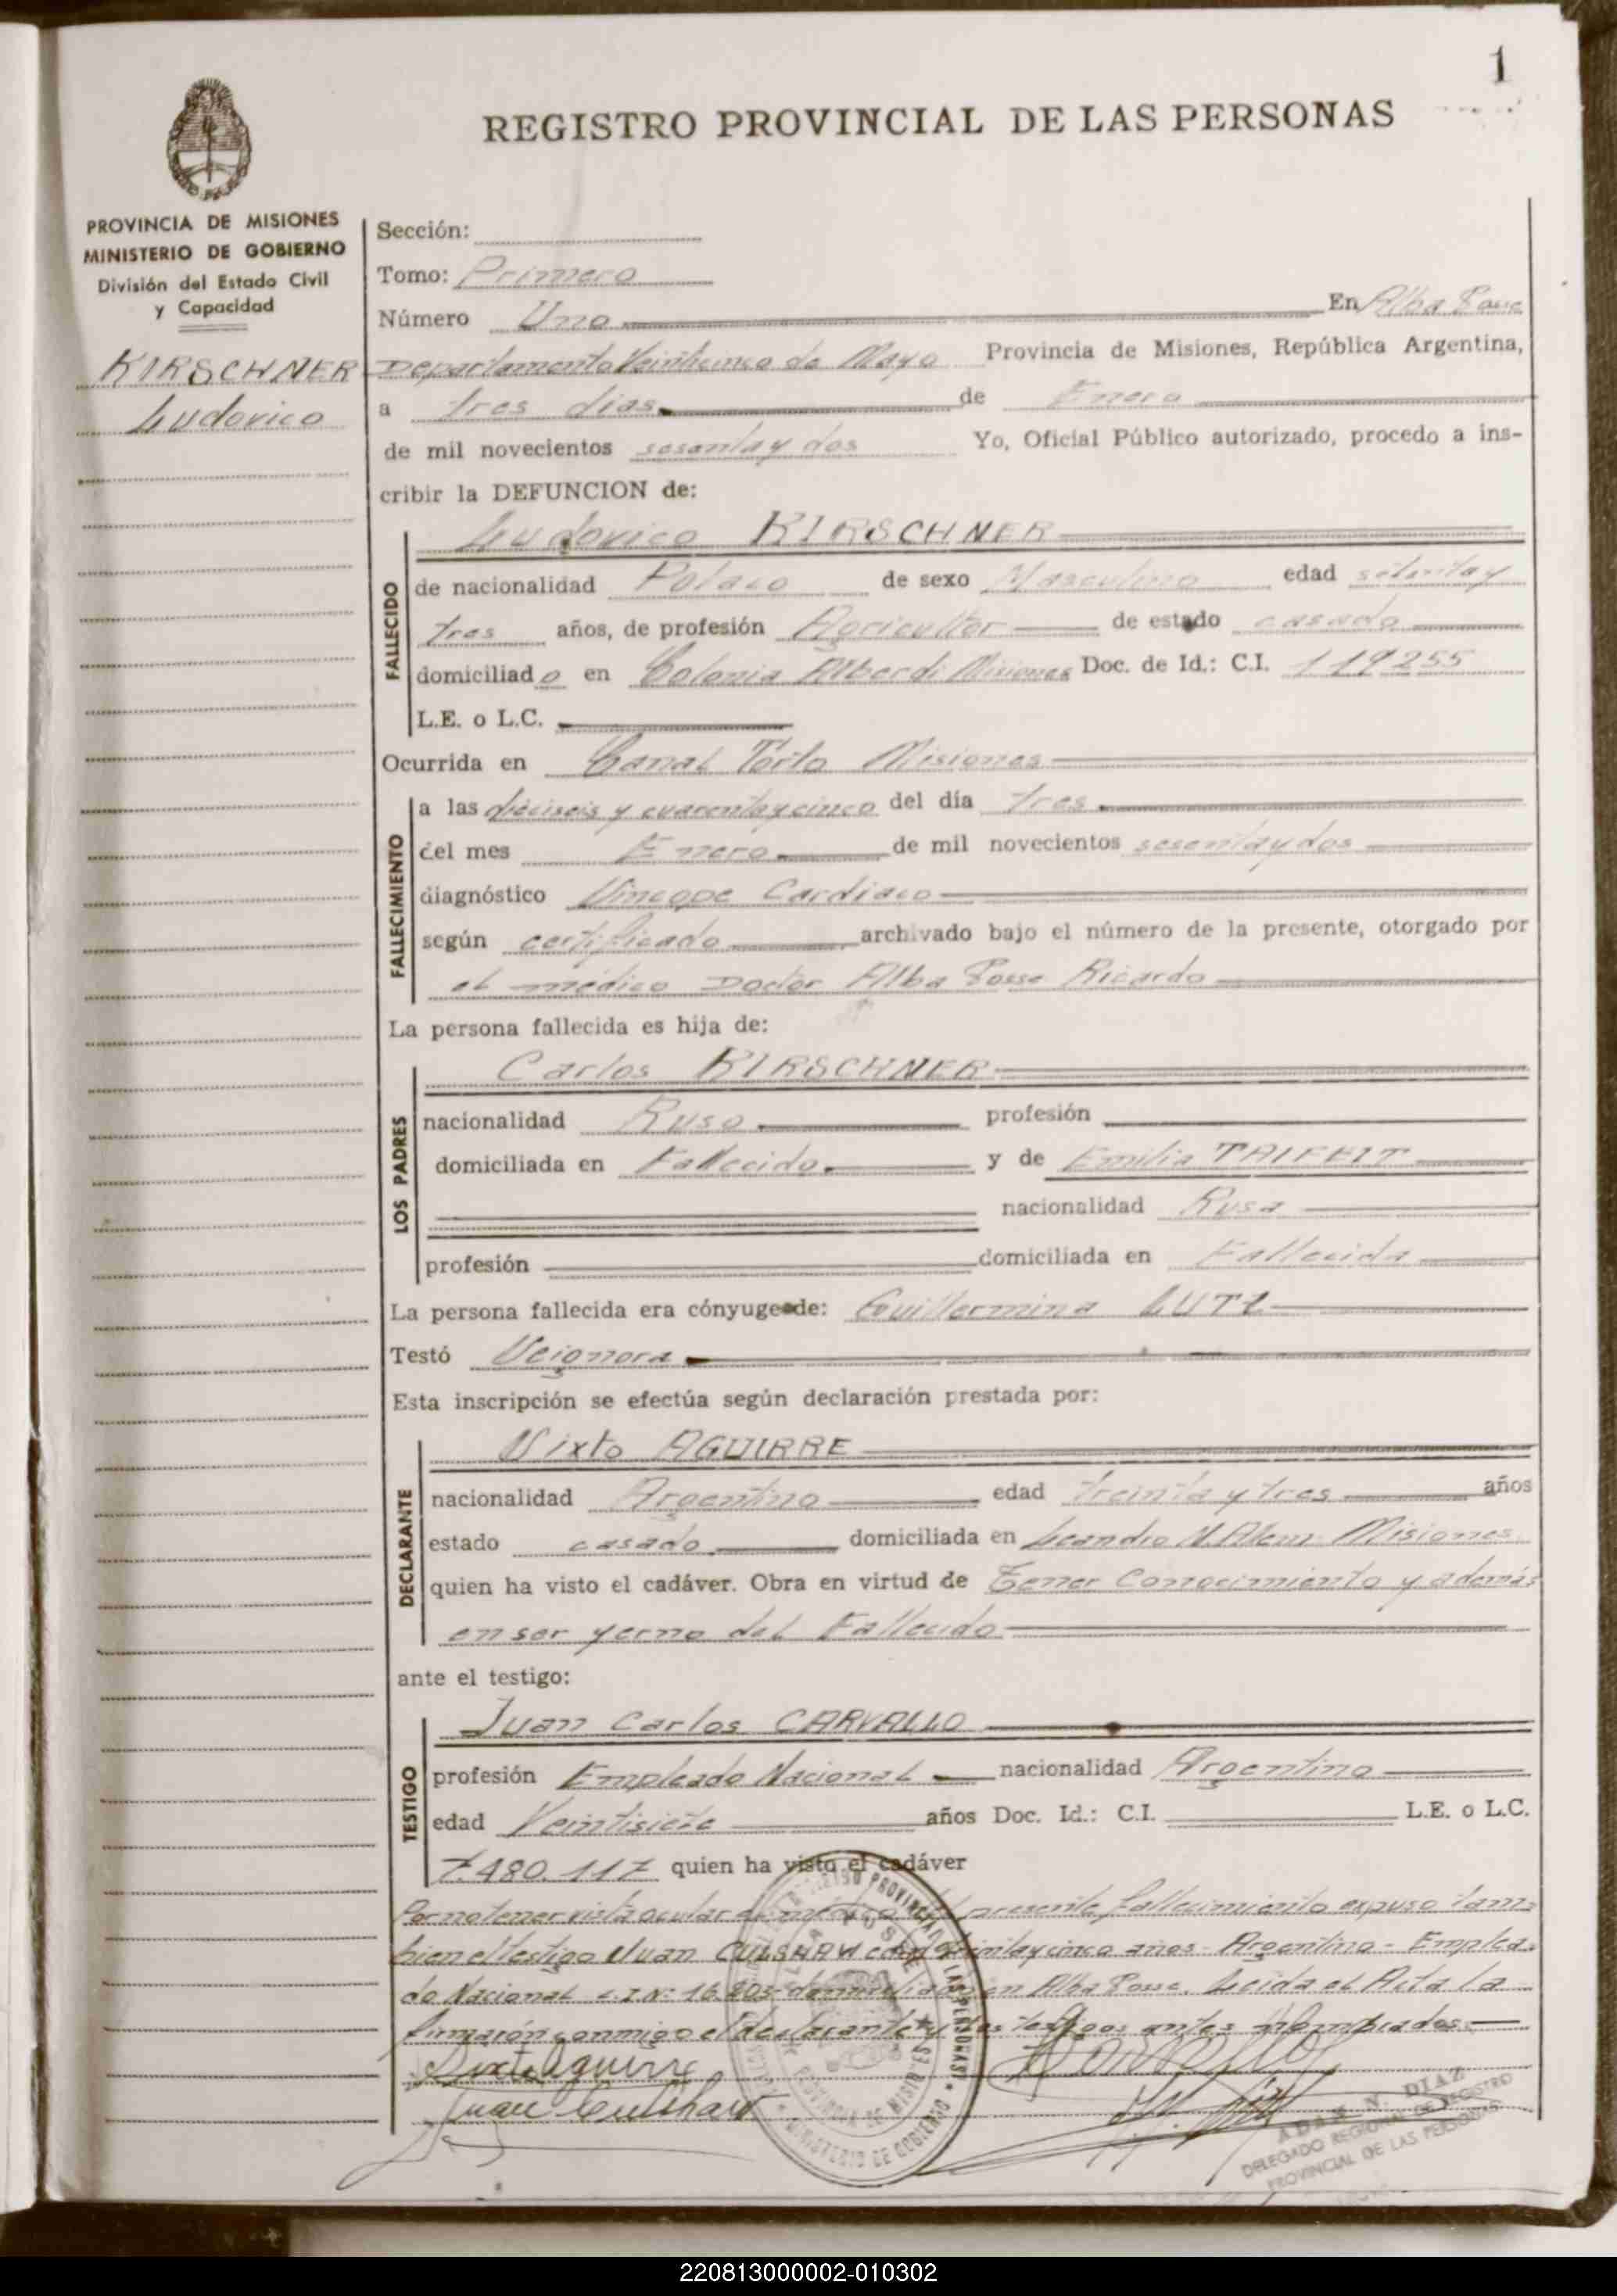 1
REGISTRO PROVINCIAL DE LAS PERSONAS
PROVINCIA DE MISIONES
MINISTERIO DE GOBIERNO
División del Estado Civil
y Capacidad
KIRSCHNER
Ludovico
Sección:
Tomo: Primero
Número Uno En Alba Posse
Departamento Veinticinco de Mayo Provincia de Misiones, República Argentina,
a tres dias de Enero
de mil novecientos sesenta y dos Yo, Oficial Público autorizado, procedo a ins-
cribir la DEFUNCION de:
Ludovico KIRSCHNER
FALLECIDO
de nacionalidad Polaco de sexo Masculino edad setenta y
tres años, de profesión Agricultor de estado casado
domiciliado en Colonia Alberdi Misiones Doc. de Id.: C.I. 119255
L.E. o L.C.
Ocurrida en Canal Torto Misiones
FALLECIMIENTO
a las dieciseis y cuarenta y cinco del día tres
del mes Enero de mil novecientos sesenta y dos
diagnóstico Sincope Cardiaco
según certificado archivado bajo el número de la presente, otorgado por
el médico Doctor Alba Posse Ricardo
La persona fallecida es hija de:
LOS PADRES
Carlos KIRSCHNER
nacionalidad Ruso profesión
domiciliada en Fallecido y de Emilia
nacionalidad Rusa
profesión domiciliada en Fallecida
La persona fallecida era cónyuge de: Guillermina LUTZ
Testó Seignora
Esta inscripción se efectúa según declaración prestada por:
DECLARANTE
Sixto AGUIRRE
nacionalidad Argentino edad treinta y tres años
estado casado domiciliada en Leandro N. Alem Misiones
quien ha visto el cadáver. Obra en virtud de Tener Conocimiento y además
en ser yerno del Fallecido
ante el testigo:
TESTIGO
Juan Carlos CARVALLO
profesión Empleado Nacional nacionalidad Argentino
edad Veintisiete años Doc. Id.: C.I. L.E. o L.C.
7.480.117 quien ha visto el cadáver
Por no tener vista ocular presente fallecimiento expuso tam-
bien el testigo Juan CULSHAW con treinta y cinco años - Argentino - Emplea-
do Nacional C.I Nº 16.803 domiciliado en Alba Posse. Leida el Acta la
firmarón conmigo el declarante y los testigos antes nombrados.
Sixto Aguirre
Juan Culshaw
REGISTRO PROVINCIAL DE LAS PERSONAS
ALBA POSSE
PROVINCIA DE MISIONES
MINISTERIO DE GOBIERNO
ADAN N. DIAZ
DELEGADO REGIONAL DE REGISTRO
PROVINCIAL DE LAS PERSONAS
220813000002-010302